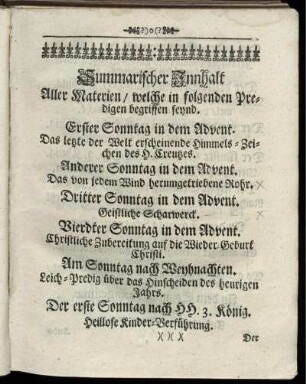 Summarischer Innhalt
Aller Materien / welche in folgenden Pre-
digen begriffen seynd.
Erster Sonntag in dem Advent.
Das letzte der Welt erscheinende Himmels-Zei-
chen des H. Creutzes.
Anderer Sonntag in dem Advent.
Das von jedem Wind herumgetriebene Rohr.
Dritter Sonntag in dem Advent.
Geistliche Scharwerck.
Vierdter Sonntag in dem Advent.
Christliche Zubereitung auf die Wieder-Geburt
Christi.
Am Sonntag nach Weyhnachten.
Leich-Predig über das Hinscheiden des heurigen
Jahrs.
Der erste Sonntag nach HH. 3. König.
Heillose Kinder-Verführung.
)( )( )( Der